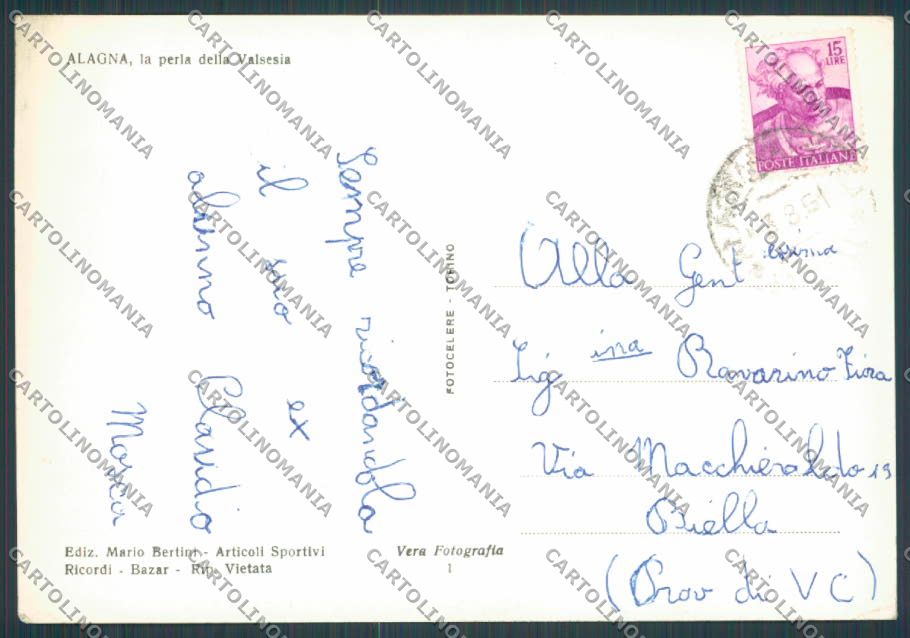 ALAGNA, la perla della Valsesia
15
LIRE
POSTE ITALIANE
Sempre ricordandola
il suo ex
alunno Claudio
Mosca
FOTOCELERE - TORINO
Alla Gent issima
Sig ina Ravarino Fiora
Via Macchieraldo 13
Biella
(Prov di V C)
Ediz. Mario Bertini - Articoli Sportivi
Ricordi - Bazar - Rip. Vietata
Vera Fotografia
1
CARTOLINOMANIA